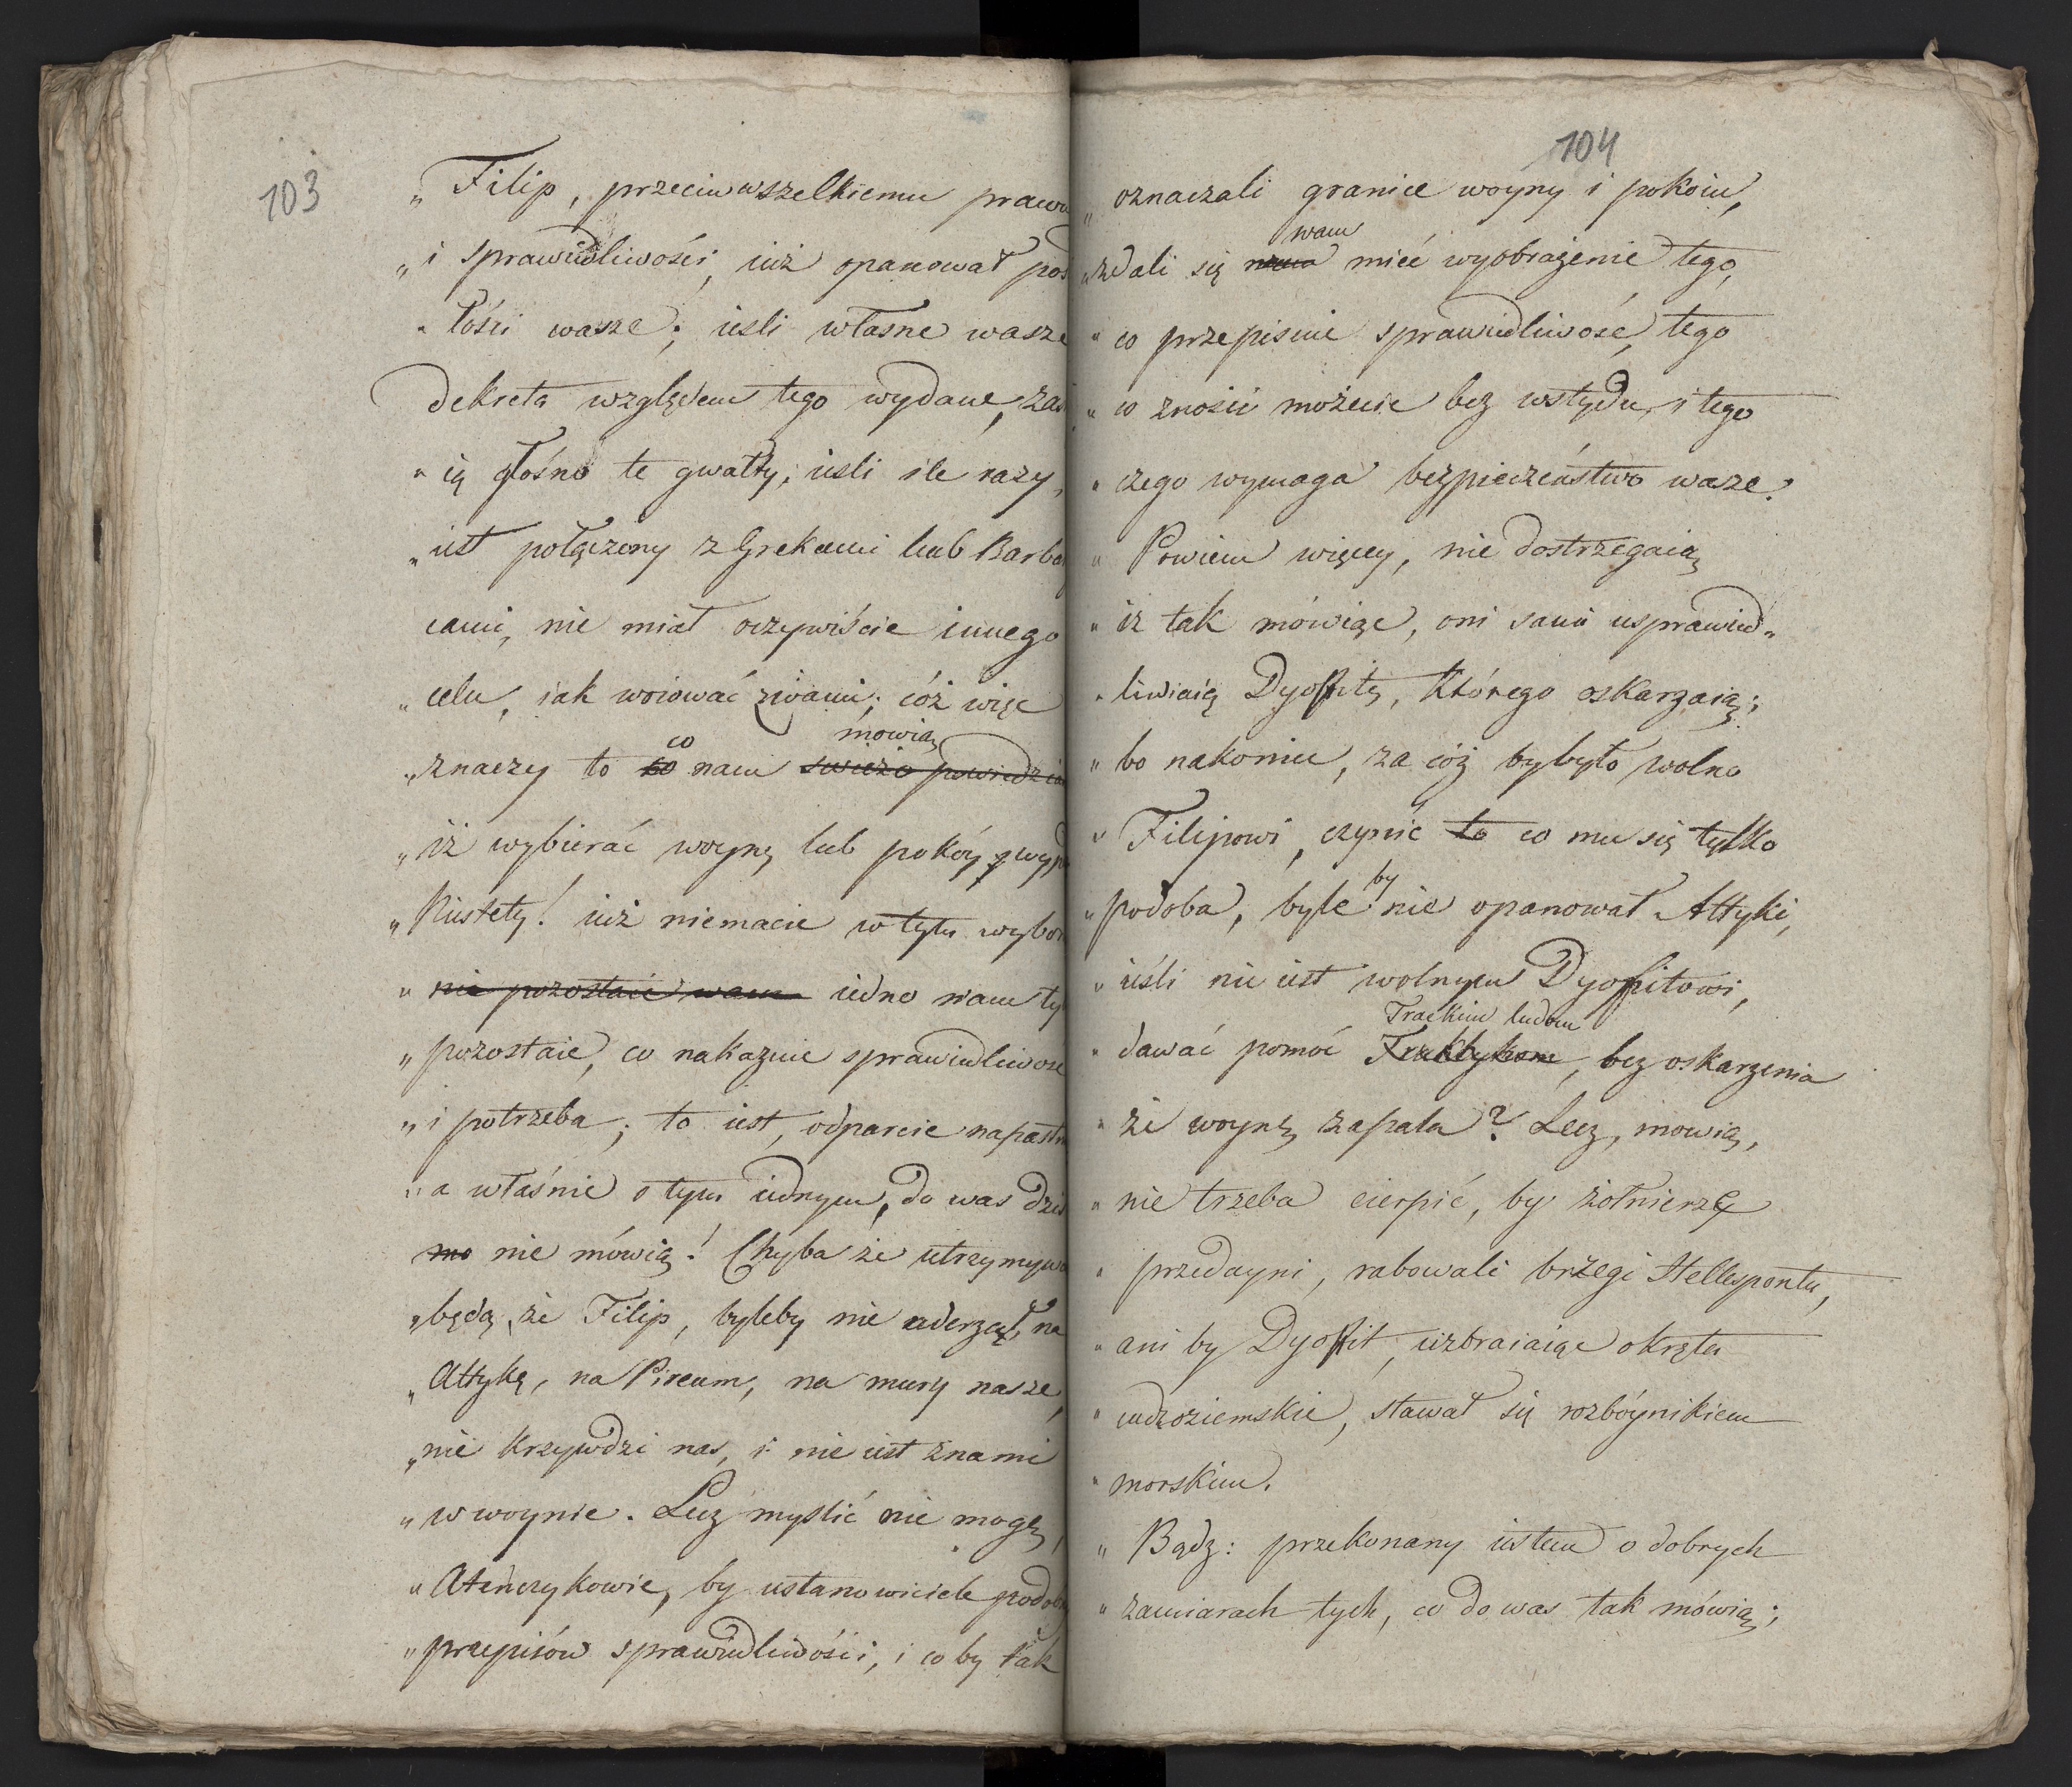 103
„ Filip, przeciw wszelkiemu prawu
„ i sprawiedliwości, iuż opanował pos
„ łości wasze; ieśli własne wasze
dekreta względem tego wydane,
„ ią głośno te gwałty; ieśli ile razy,
„ iest połączony z Grekami lub Barba
cami, nie miał oczywiście innego
„ celu, iak woiować z wami; cóż więc
co mowią
„ znaczy to to nam swieżo powiedzia
„ iż wybierać woynę lub pokóy
„ Niestety! iuż niemacie w tym wybor
„ nie pozostaie wam iedno wam ty
„ pozostaie, co nakazuie sprawiedliwosc
„ i potrzeba; to iest, odparcie napastn
„ a właśnie o tym iednym, do was
mo nie mówią! Chyba że utrzymywa
„ będą, że Filip, byleby nie uderzał, na
„ Attykę, na Pireum, na mury nasze,
„ nie krzywdzi nas, i nie iest z nami
„ w woynie. Lecz myslić nie mogę,
„ Atenczykowie, by ustanowiciele podob
„ przepisów sprawiedliwości, i co by tak
104
„ oznaczali granice woyny i pokoiu,
wam
„ zdali się mieć wyobrażenie tego,
„ co przepisuie sprawiedliwość, tego
„ co znosić możecie bez wstydu, i tego
„ czego wymaga bezpieczeństwo wasze.
„ Powiem więcey, nie dostrzegaią
„ iż tak mówiąc, oni sami usprawied„
„ liwiaią Dyofitę, którego oskarzaią;
„ bo nakoniec, za cóż by było wolno
„ Filipowi, czynić to co mu się tylko
by
„ podoba, byle nie opanował Attyki,
„ ieśli nie iest wolnym Dyofitowi,
Trackim ludom
„ dawać pomoc, bez oskarzenia
„ że woynę zapala? Lecz, mowią,
„ nie trzeba cierpić, by żołnierze
„ przedayni, rabowali brzegi Hellespontu,
„ ani by Dyofit, uzbraiaiąc okręta
„ cudzoziemskie, stawał się rozbóynikiem
„ morskim.
„ Bądz: przekonany iestem o dobrych
„ zamiarach tych, co do was tak mówią;